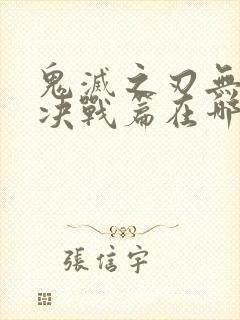 鬼滅之刃無
决戰篇在哪
張信宇